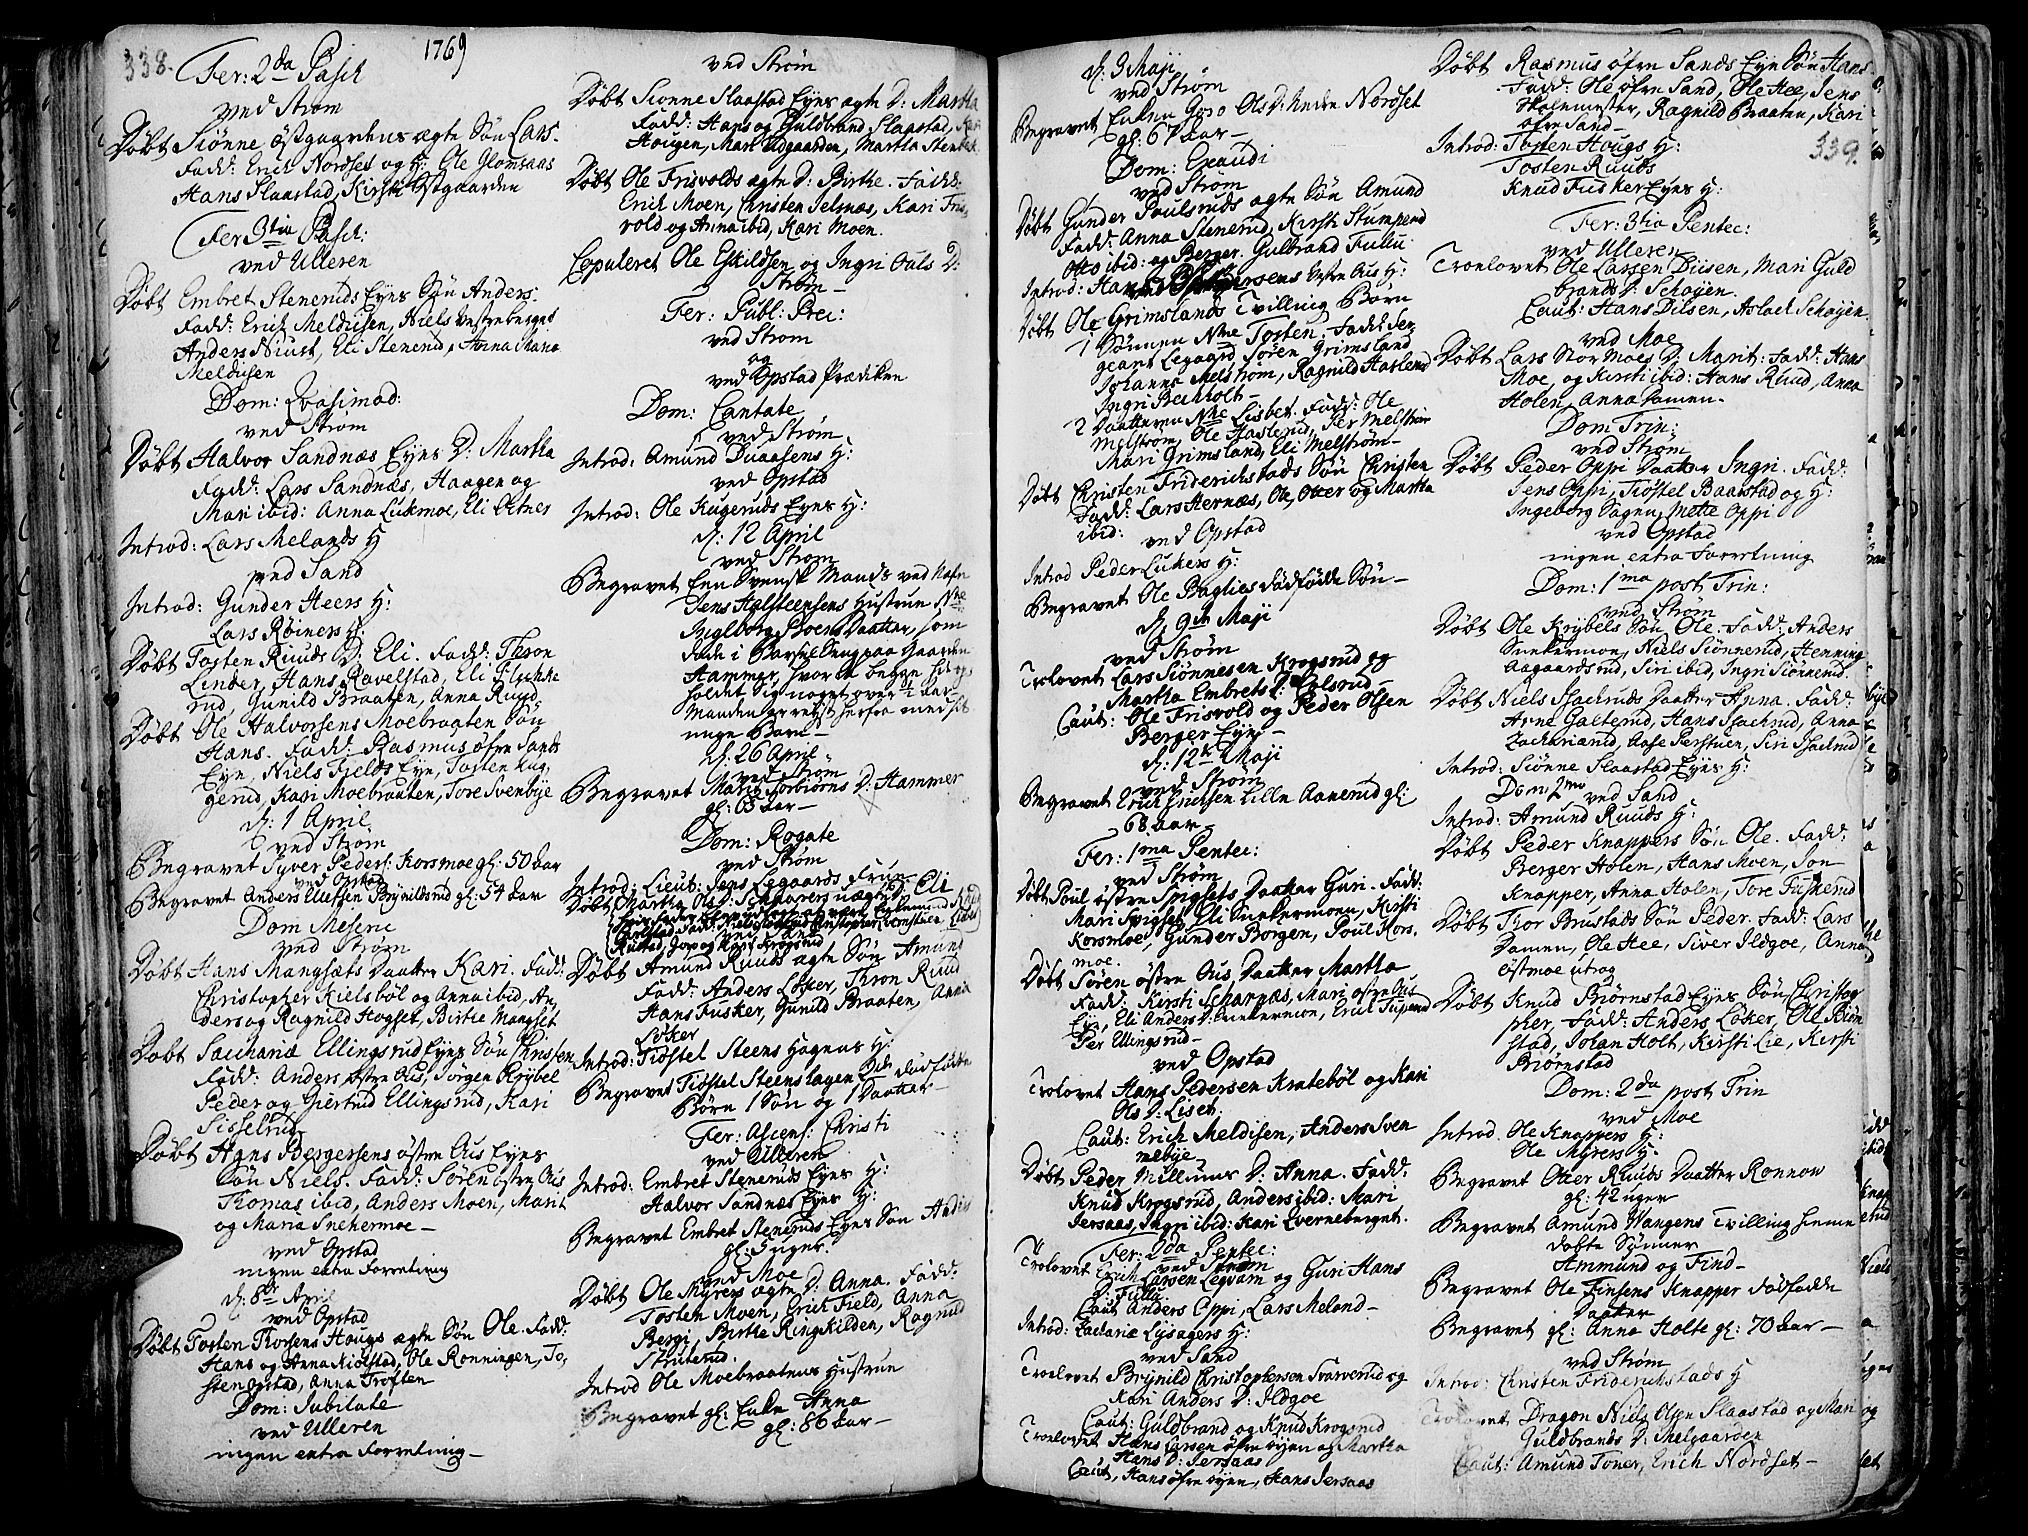 338.
1769
Fer: 2da Pasch
ved Strøm
Døbt Siønne Østgaardens ægte Søn Lars.
Fadd: Erich Nordset og H: Ole Glomsaas
Hans Slaastad, Kirsti Østgaarden
Fer 3tia Pasch:
ved Ulleren
Døbt Embret Stenerids Eyes Søn Anders.
Fadd: Erich Meldisen, Niels Vestreberget
Anders Niust, Eli Stenerid, Anna Maria
Meldisen
Dom: Qvasimod:
ved Strøm
Døbt Halvor Sandnæs Eyes D: Martha
Fadd: Lars Sandnæs, Haagen og
Mari ibid: Anna Lukmoe, Eli
Introd: Lars Melands H
ved Sand
Introd: Gunder Heers H:
Lars Røiners H:
Døbt Tosten Ruuds D: Eli. Fadd: Thron
Linder, Hans Ravelstad, Eli
rud, Gunild Braaten, Anna Ruud
Døbt Ole Halvorsens Moebraaten Søn
Hans. Fadd: Rasmus øfre Sands
Eye, Niels Fields Eye, Tosten Kug
gerud, Kari Moebraaten, Tore Svenbye
d: 1 April
ved Strøm
Begravet Syver Peders: Korsmoe gl: 50 Aar
ved Opstad
Begravet Anders Ellefsen Brynildsrud gl: 54 Aar
Dom Miseric
ved Strøm
Døbt Hans Mangsæts Daatter Kari. Fadd:
Christopher Kielsbøl og Anna ibid, An
ders og Ragnild Hogset, Birtie Mangset
Døbt Sacharia Ellingsrud Eyes Søn Christen
Fadd: Anders østre Aus, Jørgen Krybel
Peder og Giertrud Ellingsrud, Kari
Sisselrud
Døbt Hans Bergersens østre Aus Eyes
Søn Niels. Fadd: Søren østre Aus
Thomas ibid, Anders Moen, Marit
og Maria Snekermoe —
ved Opstad
ingen extra Forretning
d: 8de April
ved Opstad
Døbt Tosten Thorsens Haugs ægte Søn Ole. Fadd:
Hans og Anna Kiølstad, Ole Rønningen, To,
sten Opstad, Anna Trøften
Dom: Jubilate
ved Ulleren
ingen extra Forretning —
ved Strøm
Døbt Sionne Slaastad Eyes ægte D: Martha
Fadd: Hans og Guldbrand Slaastad, Kari
Hougen, Mari Udgaarden, Martha
Døbt Ole Frisvolds ægte D: Birthe. Fadd:
Erich Moen, Christen Jelsnæs, Kari Fris,
vold og Anna ibid, Kari Moen.
Copuleret Ole Eskildsen og Ingri Ouls D:
Strøm —
Fer: Publ: Prec:
ved Strøm
og
ved Opstad Prædiken
Dom: Cantate
ved Strøm
Introd: Amund Duaasens H:
ved Opstad
Introd: Ole Kugeruds Eyes H:
d: 12 April
ved Strøm
Begravet Een Svensk Mands ved Nafn
Jens Halsteensens Hustrue Nhe
Ingeborg Daatter, som
døde i Barsel Seng paa Gaarden
Hammer, hvor de begge hafde op
holdet sig noget over ½ Aar —
Manden er reyst herfra med sit
unge Barn —
d: 26 April
ved Strøm
Begravet Marit Torbiørns D: Hammer
gl: 68 Aar —
Dom: Rogate
ved Strøm
Introd: Lieut: Jens Legaards Frue
Døbt Martha Ols D: uægte D: Eli
ved Sand
Døbt Amund Ruuds ægte Søn Amund
Fadd: Anders Løker, Thron Ruud
Hans Fusker, Gunild Braaten, Anna
Løker
Introd: Tiøstel Steens Hagens H:
Begravet Tiøstel Steenshagen 2de dødfødte
Børn 1 Søn og 1 Daatter —
Fer: Ascens: Christi
ved Ulleren
Introd: Embret Steneruds Eyes H:
Halvor Sandnæs Eyes H:
Begravet Embret Steneruds Eyes Søn Anders
gl: 5 uger.
ved Moe
Døbt Ole Myrers ægte D: Anna. Fadd:
Tosten Moen, Erich Field, Anna
Bergi, Birthe Ringkilden, Ragnild
Struterud.
Introd Ole Moebraatens Hustrue
Begravet gl: Enke Anna
gl: 86 Aar —
d: 3 Maji
ved Strøm
Begravet Enken Goro Ols D: Nedre Nordset
gl: 67 Aar —
Dom: Exaudi
ved Strøm
Døbt Gunder Poulsruds ægte Søn Amund
Fadd: Anna Stenerud, Kirsti Stumperud
Otto ibid: og Berger. Gulbrand Fulu
Introd: Hans Bergersens østre Aus H:
Døbt Ole Grimslands Tvilling Børn
1 Sønnen Nhe Tosten. Fadd: Ser
geant Legaard, Søren Grimsland
Johanna Melstrøm, Ragnild Haslerud
Ingri Beckholt —
2 Daatteren Nhe Lisbet. Fadd: Ole
Melstrøm, Ole Haslerud, Per Melstrøm
Mari Grimsland, Eli Melstrøm —
Døbt Christen Friderichstads Søn Christen
Fadd: Lars Hernæs, Ole, Otter og Martha
ibid:
ved Opstad
Introd Peder Lukers H:
Begravet Ole Baglies dødfødde Søn —
d: 9de Maji
ved Strøm
Trolovet Lars Siønnesen Krogsrud og
Martha Embrets D:
Caut: Ole Frisvold og Peder Olsen
Berger Eye —
d: 12te Maji
ved Strøm
Begravet Erich Erichsen Lille Aanerud gl:
68 Aar —
Fer: 1ma Pentec:
ved Strøm
Døbt Poul østre Spigsets Daatter Guri. Fadd:
Mari Spigset, Eli Snekermoen, Kirsti
Korsmoe, Gunder Borgen, Poul Kors,
moe.
Døbt Søren østre Aus, Daatter Martha
Fadd: Kirsti Scharnæs, Mari østre Aus
Eye, Eli Anders D: Snekermoe, Erich
Per Ellingsrud —
ved Opstad
Trolovet Hans Pedersen Kratebøl og Kari
Ols D: Liset
Caut: Erich Meldisen, Anders Sven
nebye
Døbt Peder Millums D: Anna. Fadd:
Knud Krogsrud, Anders ibid: Mari
Jersaas, Ingri ibid: Kari Qverneberget.
Fer: 2da Pentec:
ved Strøm
Trolovet Erich Larsen Legvam og Guri Hans
D: Fulu.
Caut Anders Oppi, Lars Meland —
Introd: Zacharia Lysagers H:
ved Sand
Trolovet Brynild Christophersen Svarverud og
Kari Anders D: Ildgoe
Caut: Guldbrand og Knud Krogsrud
Troelovet Hans Larsen øfre øyen og Martha
Hans D: Jersaas
Caut, Hans øfre øyen, Hans Jersaas
Døbt Rasmus øfre Sands Eye Søn Hans.
Fadd: Ole øfre Sand, Ole Hee, Jens
Skolemester, Ragnild Braaten, Kari
øfre Sand —
339.
Introd: Tosten Hougs H:
Tosten Ruuds
Knud Fusker Eyes H:
Fer: 3tia Pentec:
ved Ulleren
Troelovet Ole Larsen Diisen, Mari Guld
brands D: Schøyen.
Caut: Hans Diisen, Aslach Schøyen
ved Moe
Døbt Lars Stor Moes D: Marit: Fadd: Hans
Moe, og Kirsti ibid: Hans Ruud, Anna
Holen, Anna Damen.
Dom Trin:
ved Strøm
Døbt Peder Oppi Daatter Ingri. Fadd:
Jens Oppi, Tiøstel Baastad og H:
Ingeborg Sagen, Mette Oppi
ved Opstad
ingen extra Forretning
Dom: 1ma post Trin:
ved Strøm
Døbt Ole Krybels Søn Ole. Fadd: Anders
Snekermoe, Niels Siønnerud, Henning
Aagaardsrud, Siri ibid, Ingri Siønnerud.
Døbt Niels Daatter Anna. Fadd:
Arne Galterud, Hans Anna
Zachariasrud, Aase Perstuen, Siri
Introd: Siønne Slaastad Eyes H:
Dom: 2me ved Sand
Introd: Amund Ruuds H:
Døbt Peder Knappers Søn Ole. Fadd:
Berger Holen, Hans Moen, Jon
Knapper, Anna Holen, Tore Fuskerud
Døbt Tior Brustads Søn Peder. Fadd: Lars
Damen, Ole Hee, Siver Ildgoe, Anna
Østmoe utrog
Døbt Knud Biørnstad Eyes Søn Christop
pher, Fadd: Anders Løker, Ole Biørn
stad, Johan Holt, Kirsti Lie, Kirsti
Biørnstad
Dom: 2da post Trin
ved Moe
Introd: Ole Knappers H:
Ole Myrers H:
Begravet Otter Ruuds Daatter Ronnow
gl: 42 uger
Begravet Amund Wangens Tvilling hieme
døbte Sønner
Ammund og Find —
Begravet Ole Finsens Knapper dødfødde
Daatter
Begravet gl: Anna Holte gl: 70 Aar —
ved Strøm
Introd: Christen Friderichstads H
Trolovet Dragon Niels Olsen Slaastad og Mari
Guldbrands D: Melgaarden
Caut: Amund Toner, Erich Nordset —